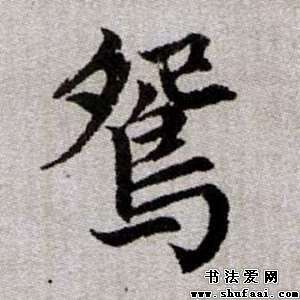 鴛
书法爱网
www.shufaai.com